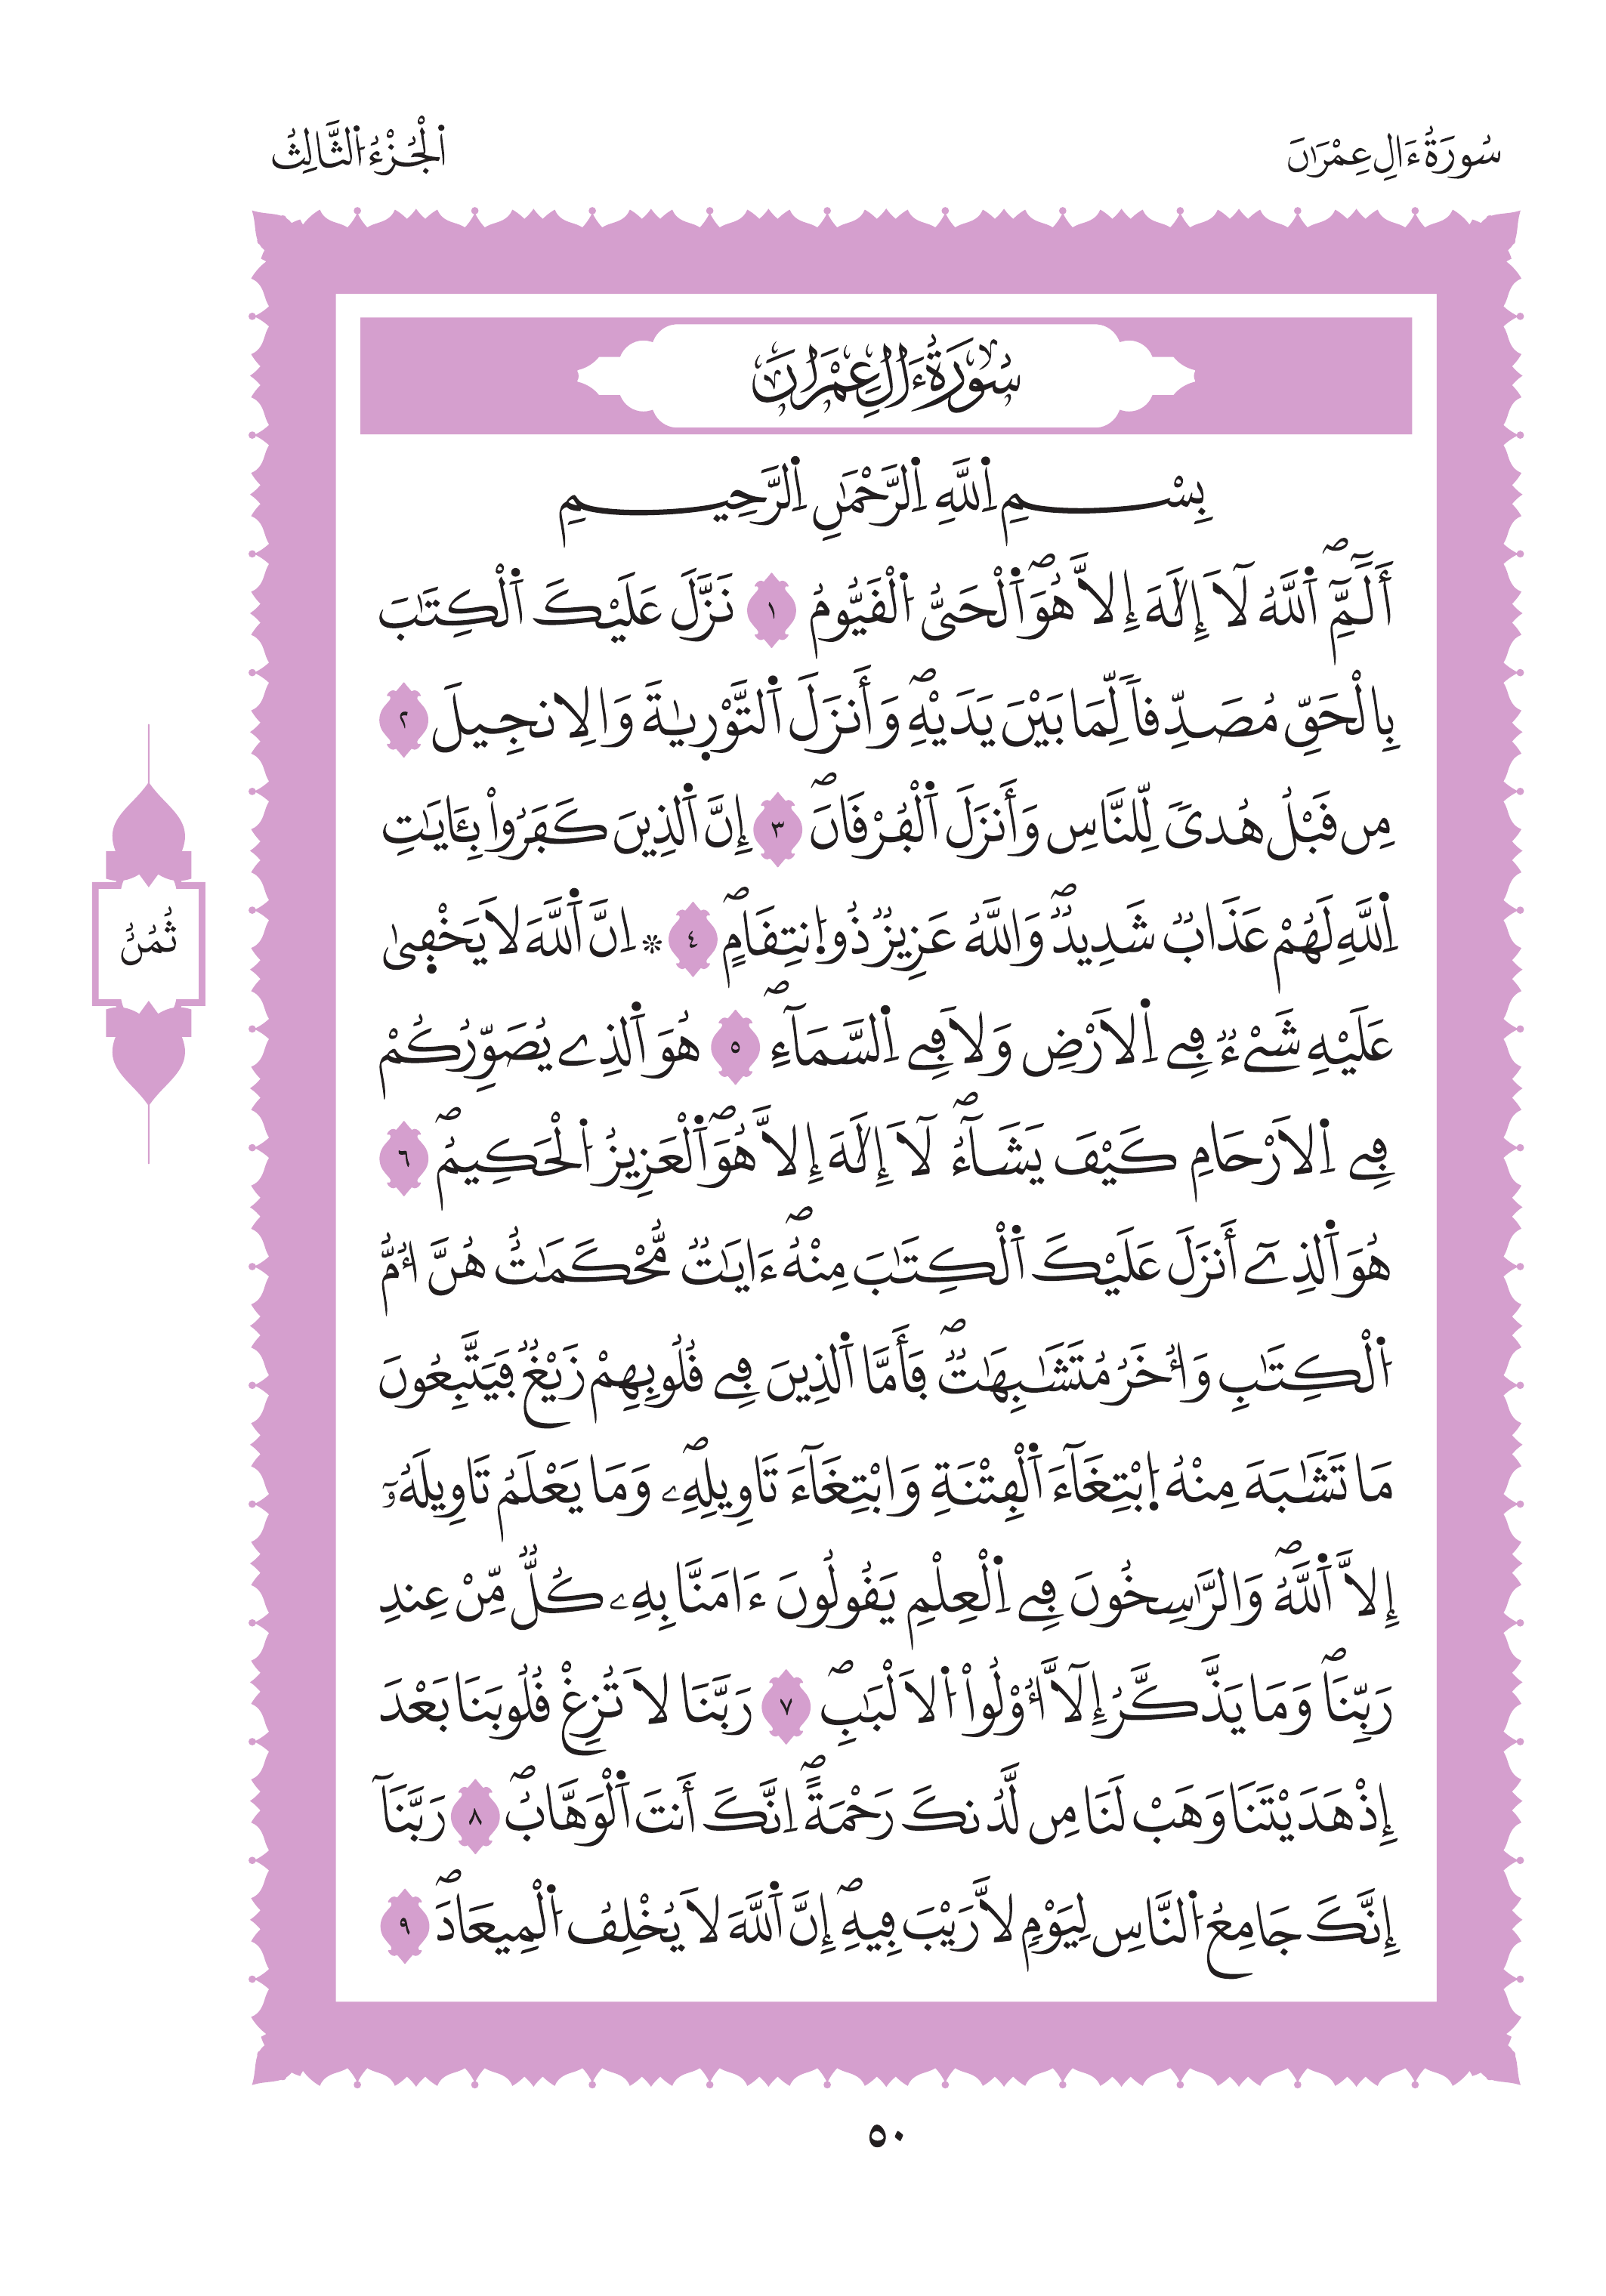 سُورَةُ ءَالِ عِمْرَٰنَ
اَ۬لْجُزْءُ اُ۬لثَّالِثُ
سُورَةُ ءَالِ عِمْرَٰنَ
بِسْمِ اِ۬للَّهِ اِ۬لرَّحْمَٰنِ اِ۬لرَّحِيمِ
أَلَٓمِّٓۖ اَ۬للَّهُ لَآ إِلَٰهَ إِلَّا هُوَۖ اَ۬لْحَىُّ اُ۬لْفَيُّومُ ١ نَزَّلَ عَلَيْكَ اَ۬لْكِتَٰبَ
بِالْحَقِّ مُصَدِّقاٗ لِّمَا بَيْنَ يَدَيْهِۖ وَأَنزَلَ اَ۬لتَّوْر۪يٰةَ وَالِانجِيلَ ٢
مِن قَبْلُ هُدىٗ لِّلنَّاسِ وَأَنزَلَ اَ۬لْفُرْقَانَۖ ٣ إِنَّ اَ۬لذِينَ كَفَرُواْ بِـَٔايَٰتِ
اِ۬للَّهِ لَهُمْ عَذَابٞ شَدِيدٞۖ وَاللَّهُ عَزِيزٞ ذُو اُ۪نتِقَامٍۖ ٤ ۞ اِنَّ اَ۬للَّهَ لَا يَخْف۪ىٰ
عَلَيْهِ شَےْءٞ فِے اِ۬لَارْضِ وَلَا فِے اِ۬لسَّمَآءِۖ ٥ هُوَ اَ۬لذِے يُصَوِّرُكُمْ
فِے اِ۬لَارْحَامِ كَيْفَ يَشَآءُۖ لَآ إِلَٰهَ إِلَّا هُوَۖ اَ۬لْعَزِيزُ اُ۬لْحَكِيمُۖ ٦
هُوَ اَ۬لذِےٓ أَنزَلَ عَلَيْكَ اَ۬لْكِتَٰبَ مِنْهُۖ ءَايَٰتٞ مُّحْكَمَٰتٌ هُنَّ أُمُّ
اُ۬لْكِتَٰبِ وَأُخَرُ مُتَشَٰبِهَٰتٞۖ فَأَمَّا اَ۬لذِينَ فِے قُلُوبِهِمْ زَيْغٞ فَيَتَّبِعُونَ
مَا تَشَٰبَهَ مِنْهُ اُ۪بْتِغَآءَ اَ۬لْفِتْنَةِ وَابْتِغَآءَ تَاوِيلِهِۦۖ وَمَا يَعْلَمُ تَاوِيلَهُۥٓ
إِلَّا اَ۬للَّهُۖ وَالرَّٰسِخُونَ فِے اِ۬لْعِلْمِ يَقُولُونَ ءَامَنَّا بِهِۦ كُلّٞ مِّنْ عِندِ
رَبِّنَاۖ وَمَا يَذَّكَّرُ إِلَّآ أُوْلُواْ اُ۬لَالْبَٰبِۖ ٧ رَبَّنَا لَا تُزِغْ قُلُوبَنَا بَعْدَ
إِذْ هَدَيْتَنَا وَهَبْ لَنَا مِن لَّدُنكَ رَحْمَةًۖ اِنَّكَ أَنتَ اَ۬لْوَهَّابُۖ ٨ رَبَّنَآ
إِنَّكَ جَامِعُ اُ۬لنَّاسِ لِيَوْمٖ لَّا رَيْبَ فِيهِۖ إِنَّ اَ۬للَّهَ لَا يُخْلِفُ اُ۬لْمِيعَادَۖ ٩
ثُمُنُ
٥٠